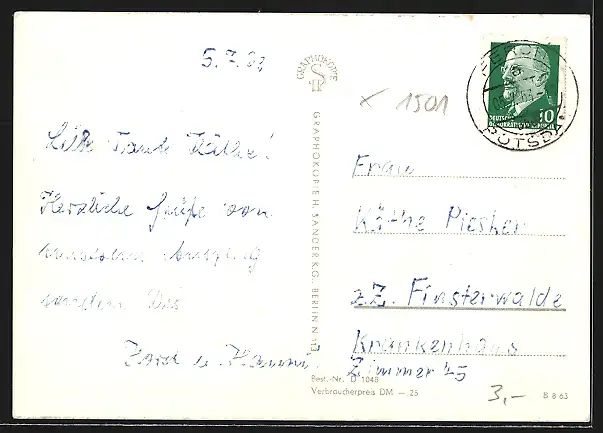 5.7.63
Liebe Tante Käthe!
Herzliche Grüße von
unserem Ausflug
senden Dir
Horst u. Hanni
GRAPHOKOPIE
GRAPHOKOPIE H. SANDER KG. BERLIN N
× 1501
POTSDAM
DEUTSCHE
DEMOKRATISCHE REPUBLIK
10
Frau
Käthe Piesker
z.Z. Finsterwalde
Krankenhaus
Zimmer 45
Best.-Nr. D 1048
Verbraucherpreis DM —.25
3,-
B 8 63